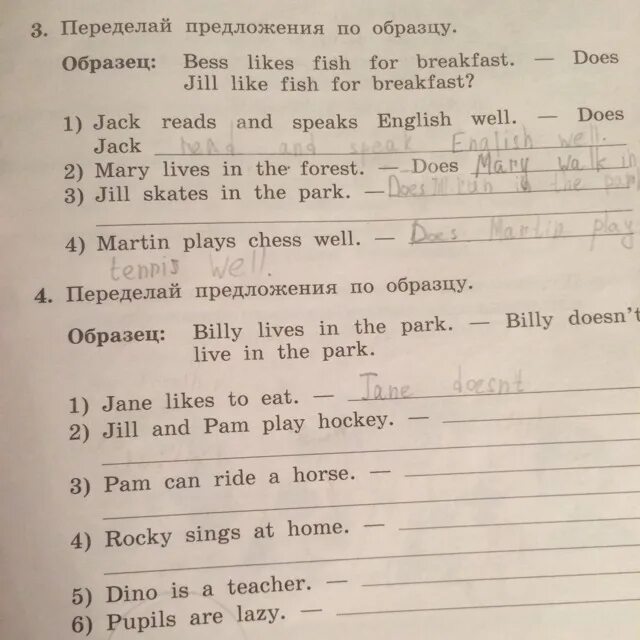 3. Переделай предложения по образцу.
Образец: Bess likes fish for breakfast. — Does
Jill like fish for breakfast?
1) Jack reads and speaks English well. — Does
Jack read and speak English well.
2) Mary lives in the forest. — Does Mary walk in
3) Jill skates in the park. — Does Jill run in the park
4) Martin plays chess well. — Does Martin play
tennis well.
4. Переделай предложения по образцу.
Образец: Billy lives in the park. — Billy doesn't
live in the park.
1) Jane likes to eat. — Jane doesnt
2) Jill and Pam play hockey. —
3) Pam can ride a horse. —
4) Rocky sings at home. —
5) Dino is a teacher. —
6) Pupils are lazy. —